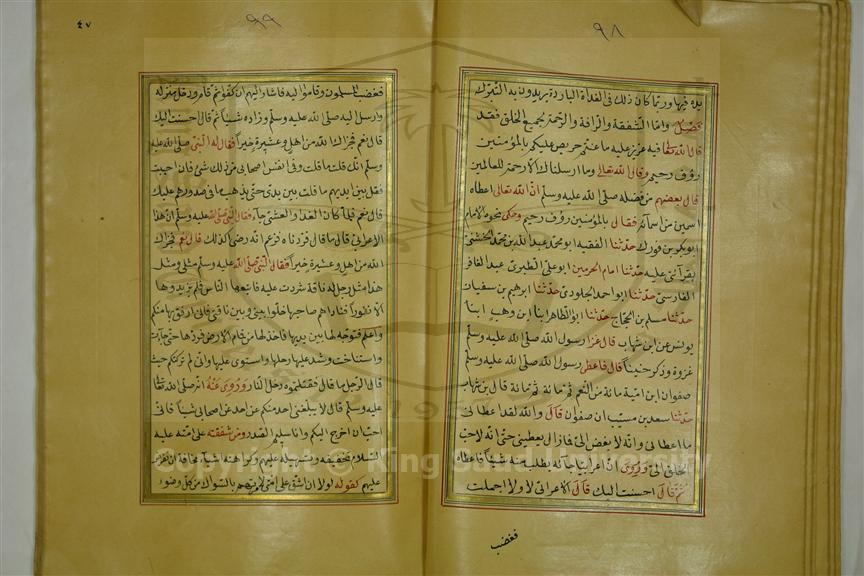 ٩٨
يده فيها وربما كان ذلك فى الغداة الباردة يريدون به التبرك
فصل واما الشفقة والرافة والرحمة لجميع الخلق فقد
قال الله تعالى فيه عزيز عليه ما عنتم حريص عليكم بالمؤمنين
رؤف رحيم وقال الله تعالى وما ارسلناك الا رحمة للعالمين
قال بعضهم من فضله صلى الله عليه وسلم ان الله تعالى اعطاه
اسمين من اسمائه فقال بالمؤمنين رؤف رحيم وحكى نحوه الامام
ابو بكر بن فورك حدثنا الفقيه ابو محمد عبد الله بن محمد الخشنى
بقرآتى عليه حدثنا امام الحرمين ابو على الطبرى عبد الغافر
الفارسى حدثنا ابو احمد الجلودى حدثنا ابرهيم بن سفيان
حدثنا مسلم بن الحجاج حدثنا ابو الطاهر ابنأ ابن وهب ابنأ
يونس عن ابن شهاب قال غزا رسول الله صلى الله عليه وسلم
غزوة وذكر حنينا قال فاعطى رسول الله صلى الله عليه وسلم
صفوان ابن امية مائة من النعم ثم مائة ثم مائة قال بن شهاب
حدثنا سعد بن مسيب ان صفوان قال والله لقد اعطانى
ما اعطانى وانه لا بغض الى فما زال يعطينى حتى انه لاحب
الخلق الى وروى ان اعرابيا جآءه يطلب منه شيئا فاعطاه
ثم قال احسنت اليك قال الاعرابى لا ولا اجملت
فغضب
٩٩
٤٧
فغضب المسلمون وقاموا اليه فاشار اليهم ان كفوا ثم قام ودخل منزله
وارسل اليه صلى الله عليه وسلم وزاده شيئا ثم قال احسنت اليك
قال نعم فجزاك الله من اهل وعشيرة خيرا فقال له النبى صلى الله عليه
وسلم انك قلت ما قلت وفى انفس اصحابى من ذلك شئ فان احببت
فقل بين ايديهم ما قلت بين يدى حتى يذهب ما فى صدورهم عليك
قال نعم فلما كان الغد او العشى جآء فقال النبى صلى الله عليه وسلم ان هذا
الاعرابى قال ما قال فزدناه فزعم انه رضى اكذلك قال نعم فجزاك
الله من اهل وعشيرة خيرا فقال النبى صلى الله عليه وسلم مثلى ومثل
هذا مثل رجل له ناقة شردت عليه فاتبعها الناس فلم يزيدوها
الا نفورا فناداهم صاحبها خلوا بينى وبين ناقتى فانى ارفق بها منكم
واعلم فتوجه لها بين يديها فاخذ لها من قمام الارض فردها حتى جآءت
واستناخت وشد عليها رحلها واستوى عليها وانى لو تركتكم حيث
قال الرجل ما قال فقتلتموه دخل النار وروى عنه انه صلى الله تعالى
عليه وسلم قال لا يبلغنى احد منكم عن احد من اصحابى شيئا فانى
احب ان اخرج اليكم وانا سليم الصدر ومن شفقته على امته عليه
السلام تخفيفه وتسهيله عليهم وكراهته اشيآء مخافة ان تفرض
عليهم كقوله لولا ان اشق على امتى لامرتهم بالسواك مع كل وضوء
Copyright © King Saud University
1957